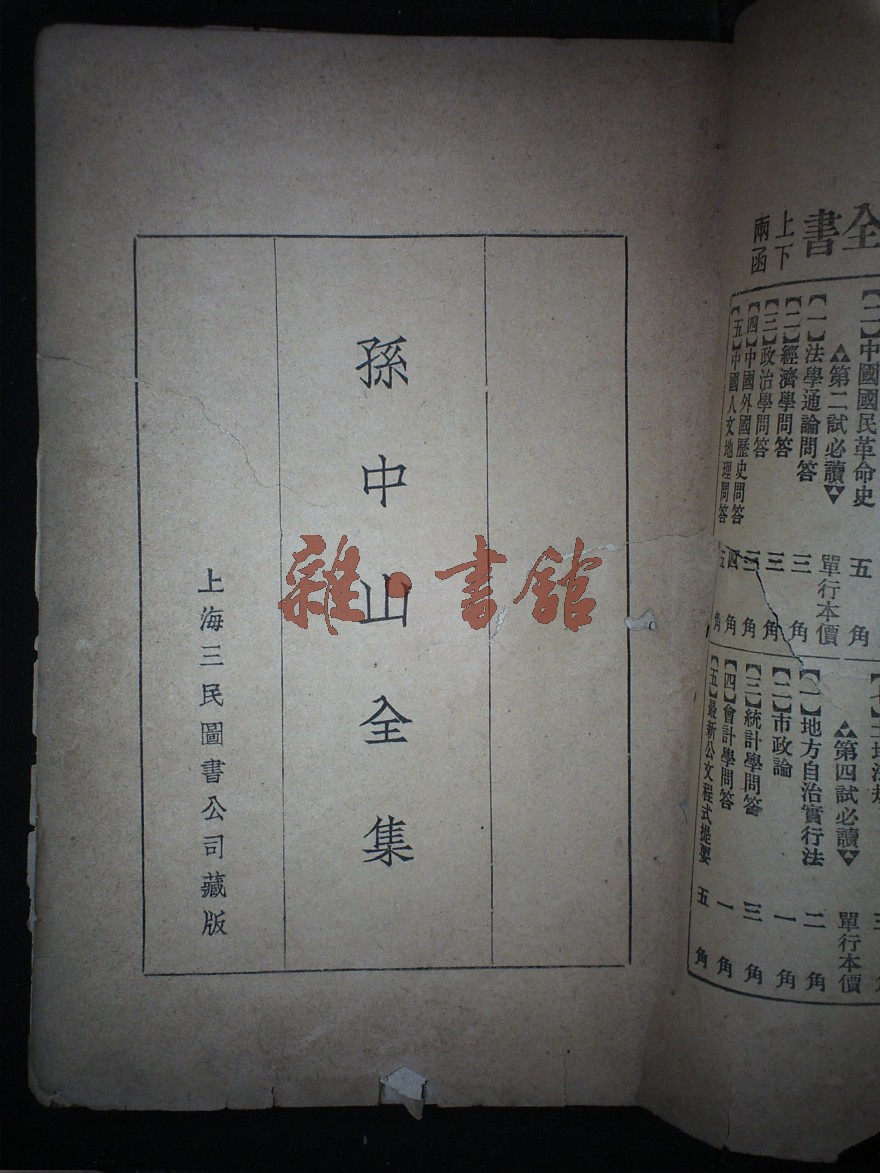 全書
上下
兩函
【二】中國國民革命史 五角
第二試必讀 單行本價
【一】法學通論問答 三角
【二】經濟學問答 三角
【三】政治學問答 三角
【四】中國外國歷史問答 四角
【五】中國人文地理問答 五角
第四試必讀 單行本價
【一】地方自治實行法 二角
【二】市政論 一角
【三】統計學問答 三角
【四】會計學問答 一角
【五】最新公文程式提要 五角
孫中山全集
上海三民圖書公司藏版
雜·書館